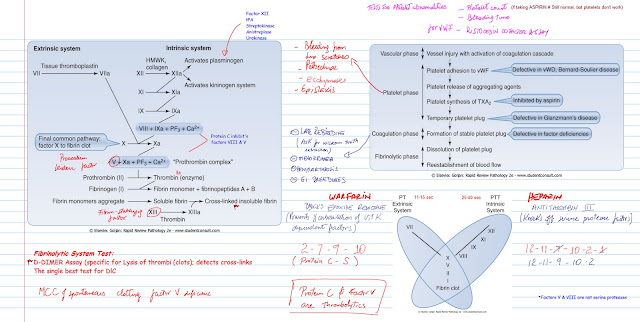 TESTS FOR Platelet abnormalities
- Platelet count
(If taking ASPIRIN it Still normal, but platelets don't work)
- Bleeding Time
for vWF - RISTOCETIN COFACTOR ASSAY
Factor XII
tPA
Streptokinase
Anistreplase
Urokinase
Extrinsic system
Intrinsic system
Tissue thromboplastin
VII
VIIa
HMWK,
collagen
XII
XIIa
Activates plasminogen
Activates kininogen system
XI
XIa
IX
IXa
VIII + IXa + PF3 + Ca2+
Protein C inhibit's
factors VIII & V
Final common pathway:
factor X to fibrin clot
X
Xa
V + Xa + PF3 + Ca2+
"Prothrombin complex"
Prothrombin (II)
Thrombin (enzyme)
Fibrinogen (I)
Fibrin monomer + fibrinopeptides A + B
Fibrin monomers aggregate
Soluble fibrin
Cross-linked insoluble fibrin
Fibrin stabilizing factor
XIII
XIIIa
Thrombin
© Elsevier. Goljan: Rapid Review Pathology 2e - www.studentconsult.com
- Bleeding from
- Petechiae
- Ecchymoses
- Epistaxis
① LATE REBLEEDING
(Ask for wisdom tooth extraction)
② MENORRHAGIA
③ HEMARTHROSIS
④ GI BLEEDING
Vascular phase
Vessel injury with activation of coagulation cascade
Platelet adhesion to vWF
Defective in vWD, Bernard-Soulier disease
Platelet phase
Platelet release of aggregating agents
Platelet synthesis of TXA2
Inhibited by aspirin
Temporary platelet plug
Defective in Glanzmann's disease
Coagulation phase
Formation of stable platelet plug
Defective in factor deficiencies
Dissolution of platelet plug
Fibrinolytic phase
Reestablishment of blood flow
© Elsevier. Goljan: Rapid Review Pathology 2e - www.studentconsult.com
Fibrinolytic System Test:
D-DIMER Assay (specific for Lysis of thrombi (clots); detects cross-links
The single best test for DIC
MCC of spontaneous clotting factor V deficiency
WARFARIN
EPOXIDE REDUCTASE
(Prevents γ carboxylation of Vit K dependent factors)
2 - 7 - 9 - 10
(Protein C - S)
Protein C & Factor V
are Thrombolytics
PT
Extrinsic
System
11-15 sec
25-40 sec
PTT
Intrinsic
System
VII
XII
XI
IX
VIII
X
V
II
I
Fibrin clot
© Elsevier. Goljan: Rapid Review Pathology 2e - www.studentconsult.com
HEPARIN
ANTITHROMBIN III
(Knocks off serine protease factors)
12-11-9-10-2
*Factors V & VIII are not serine proteases